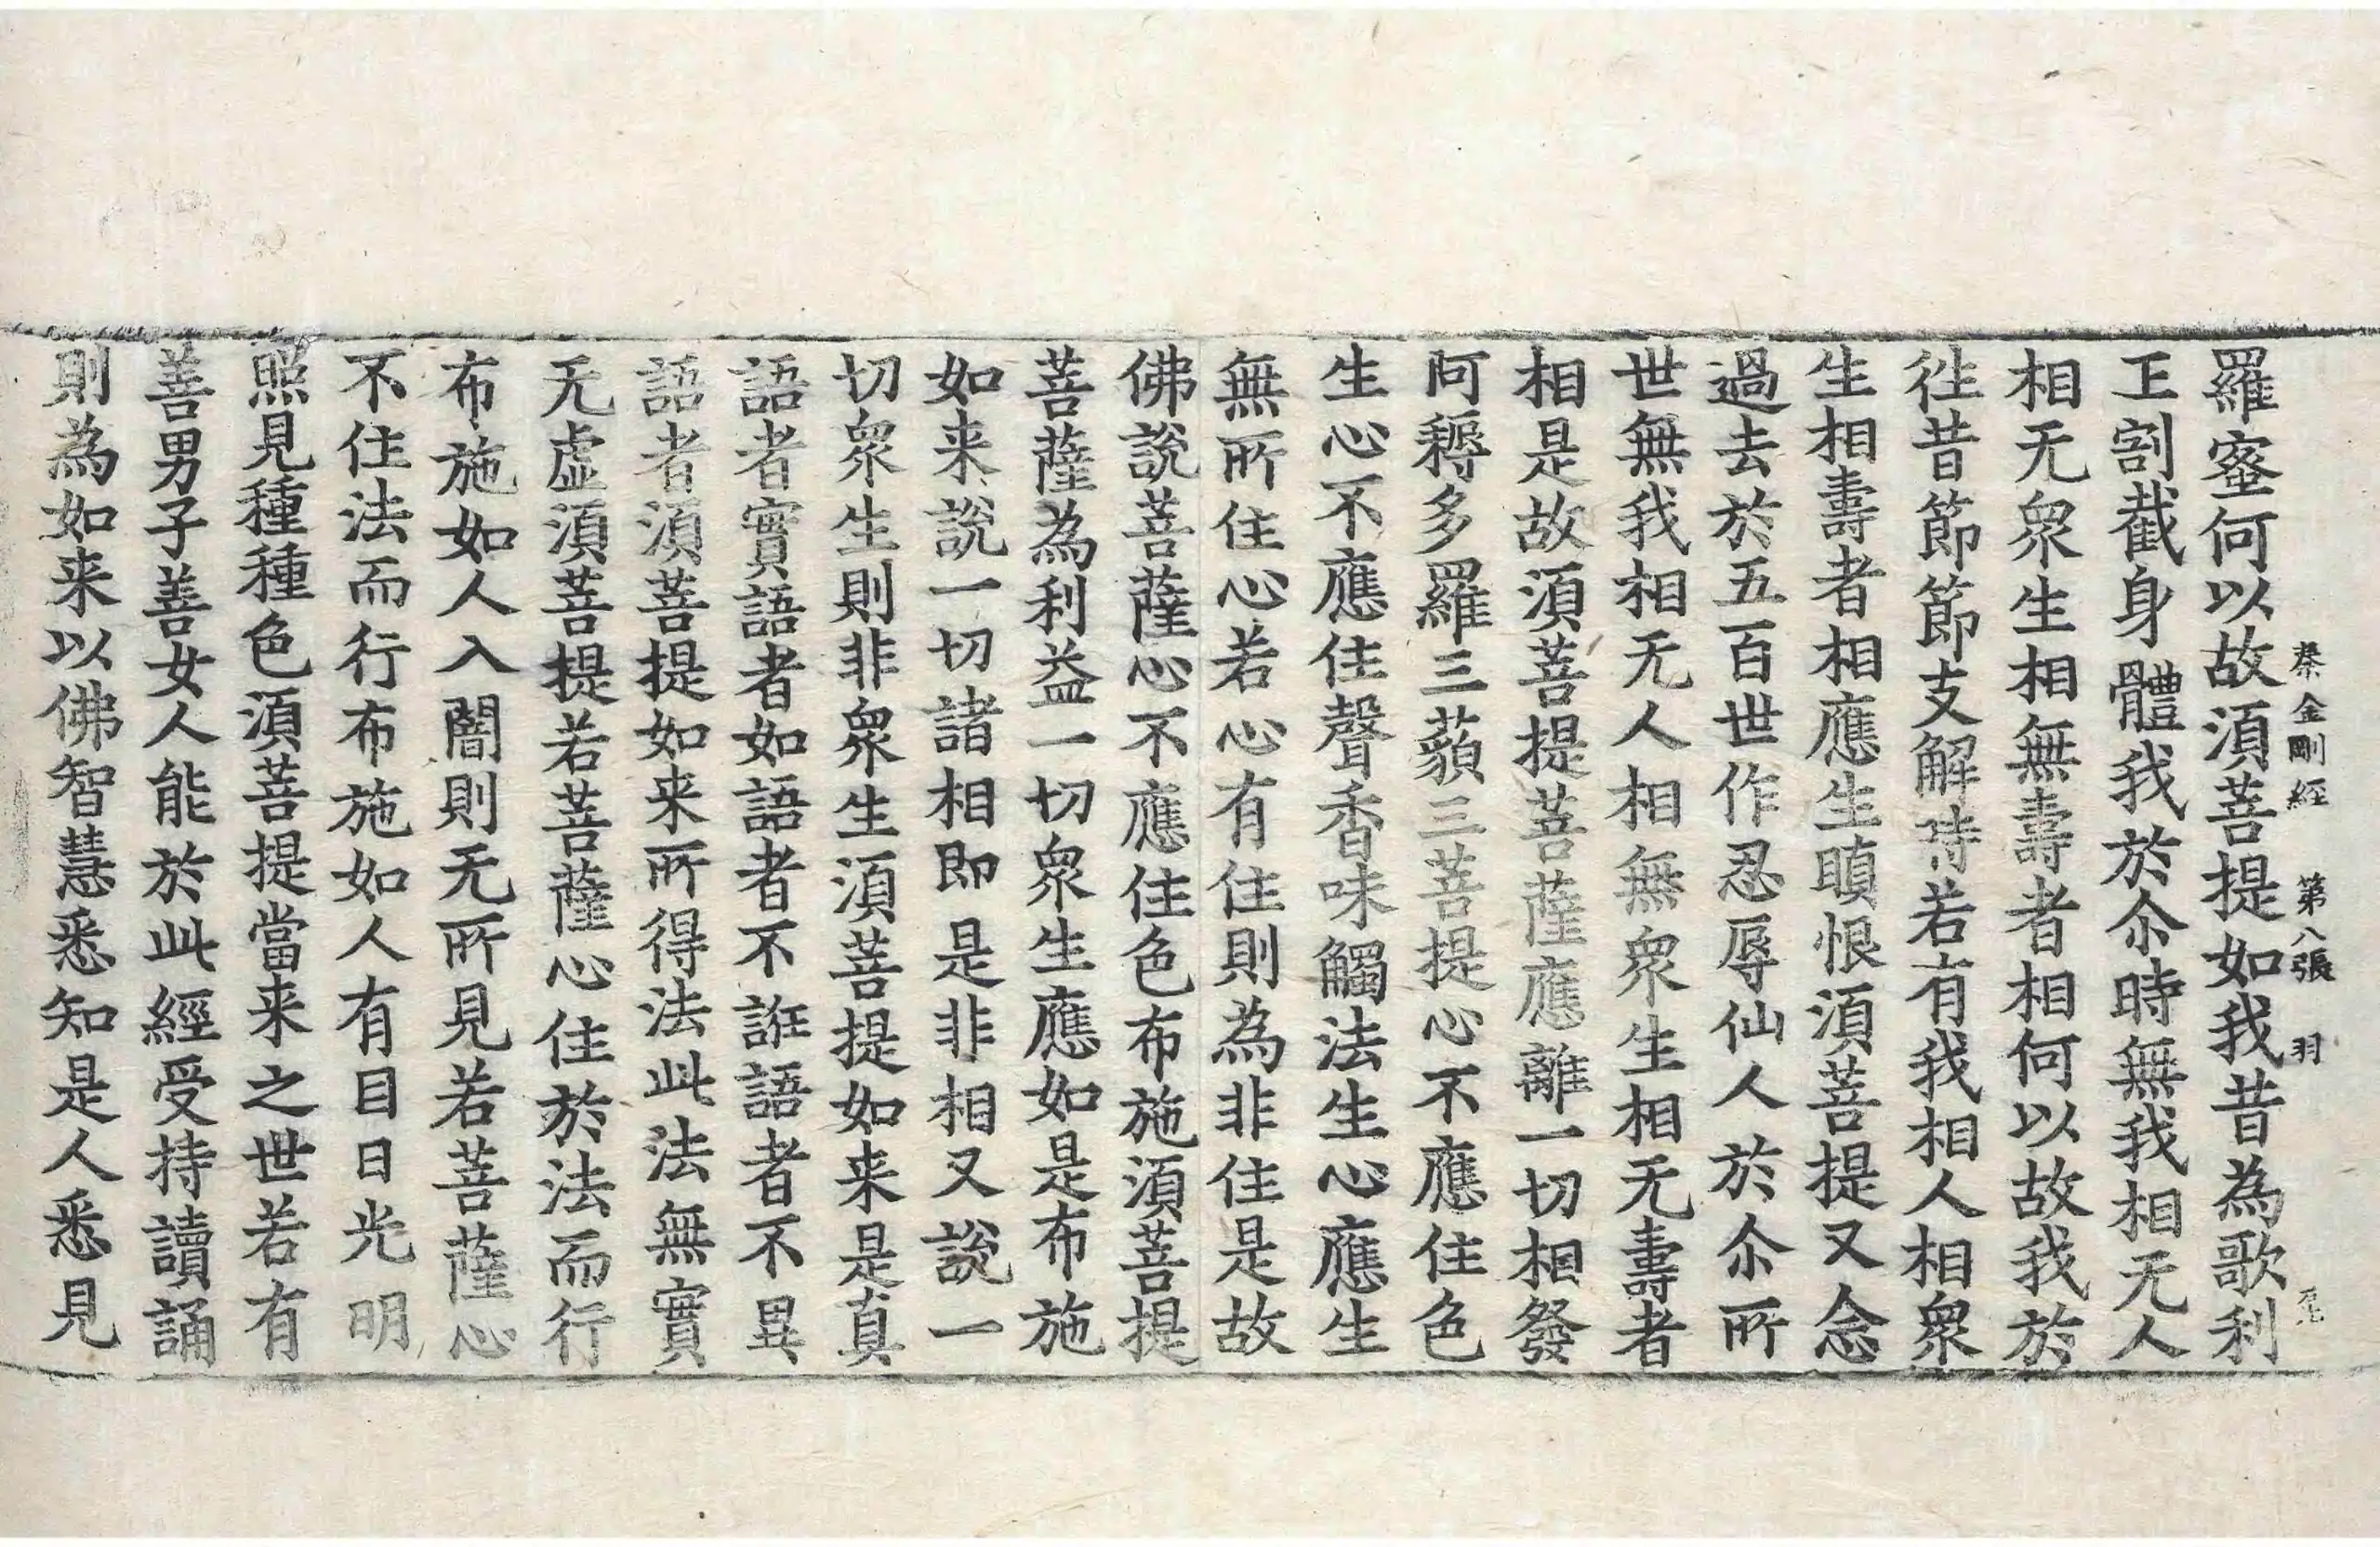 秦金剛經 第八張 羽
羅蜜何以故湏菩提如我昔為歌利
王割截身體我於尒時無我相无人
相无衆生相無壽者相何以故我於
徃昔節節支解時若有我相人相衆
生相壽者相應生瞋恨湏菩提又念
過去於五百世作忍辱仙人於尒所
世無我相无人相無衆生相无壽者
相是故湏菩提菩薩應離一切相發
阿耨多羅三藐三菩提心不應住色
生心不應住聲香味觸法生心應生
無所住心若心有住則為非住是故
佛說菩薩心不應住色布施湏菩提
菩薩為利益一切衆生應如是布施
如来說一切諸相即是非相又說一
切衆生則非衆生湏菩提如来是真
語者實語者如語者不誑語者不異
語者湏菩提如来所得法此法無實
无虛湏菩提若菩薩心住於法而行
布施如人入闇則无所見若菩薩心
不住法而行布施如人有目日光明
照見種種色湏菩提當来之世若有
善男子善女人能於此經受持讀誦
則為如来以佛智慧悉知是人悉見